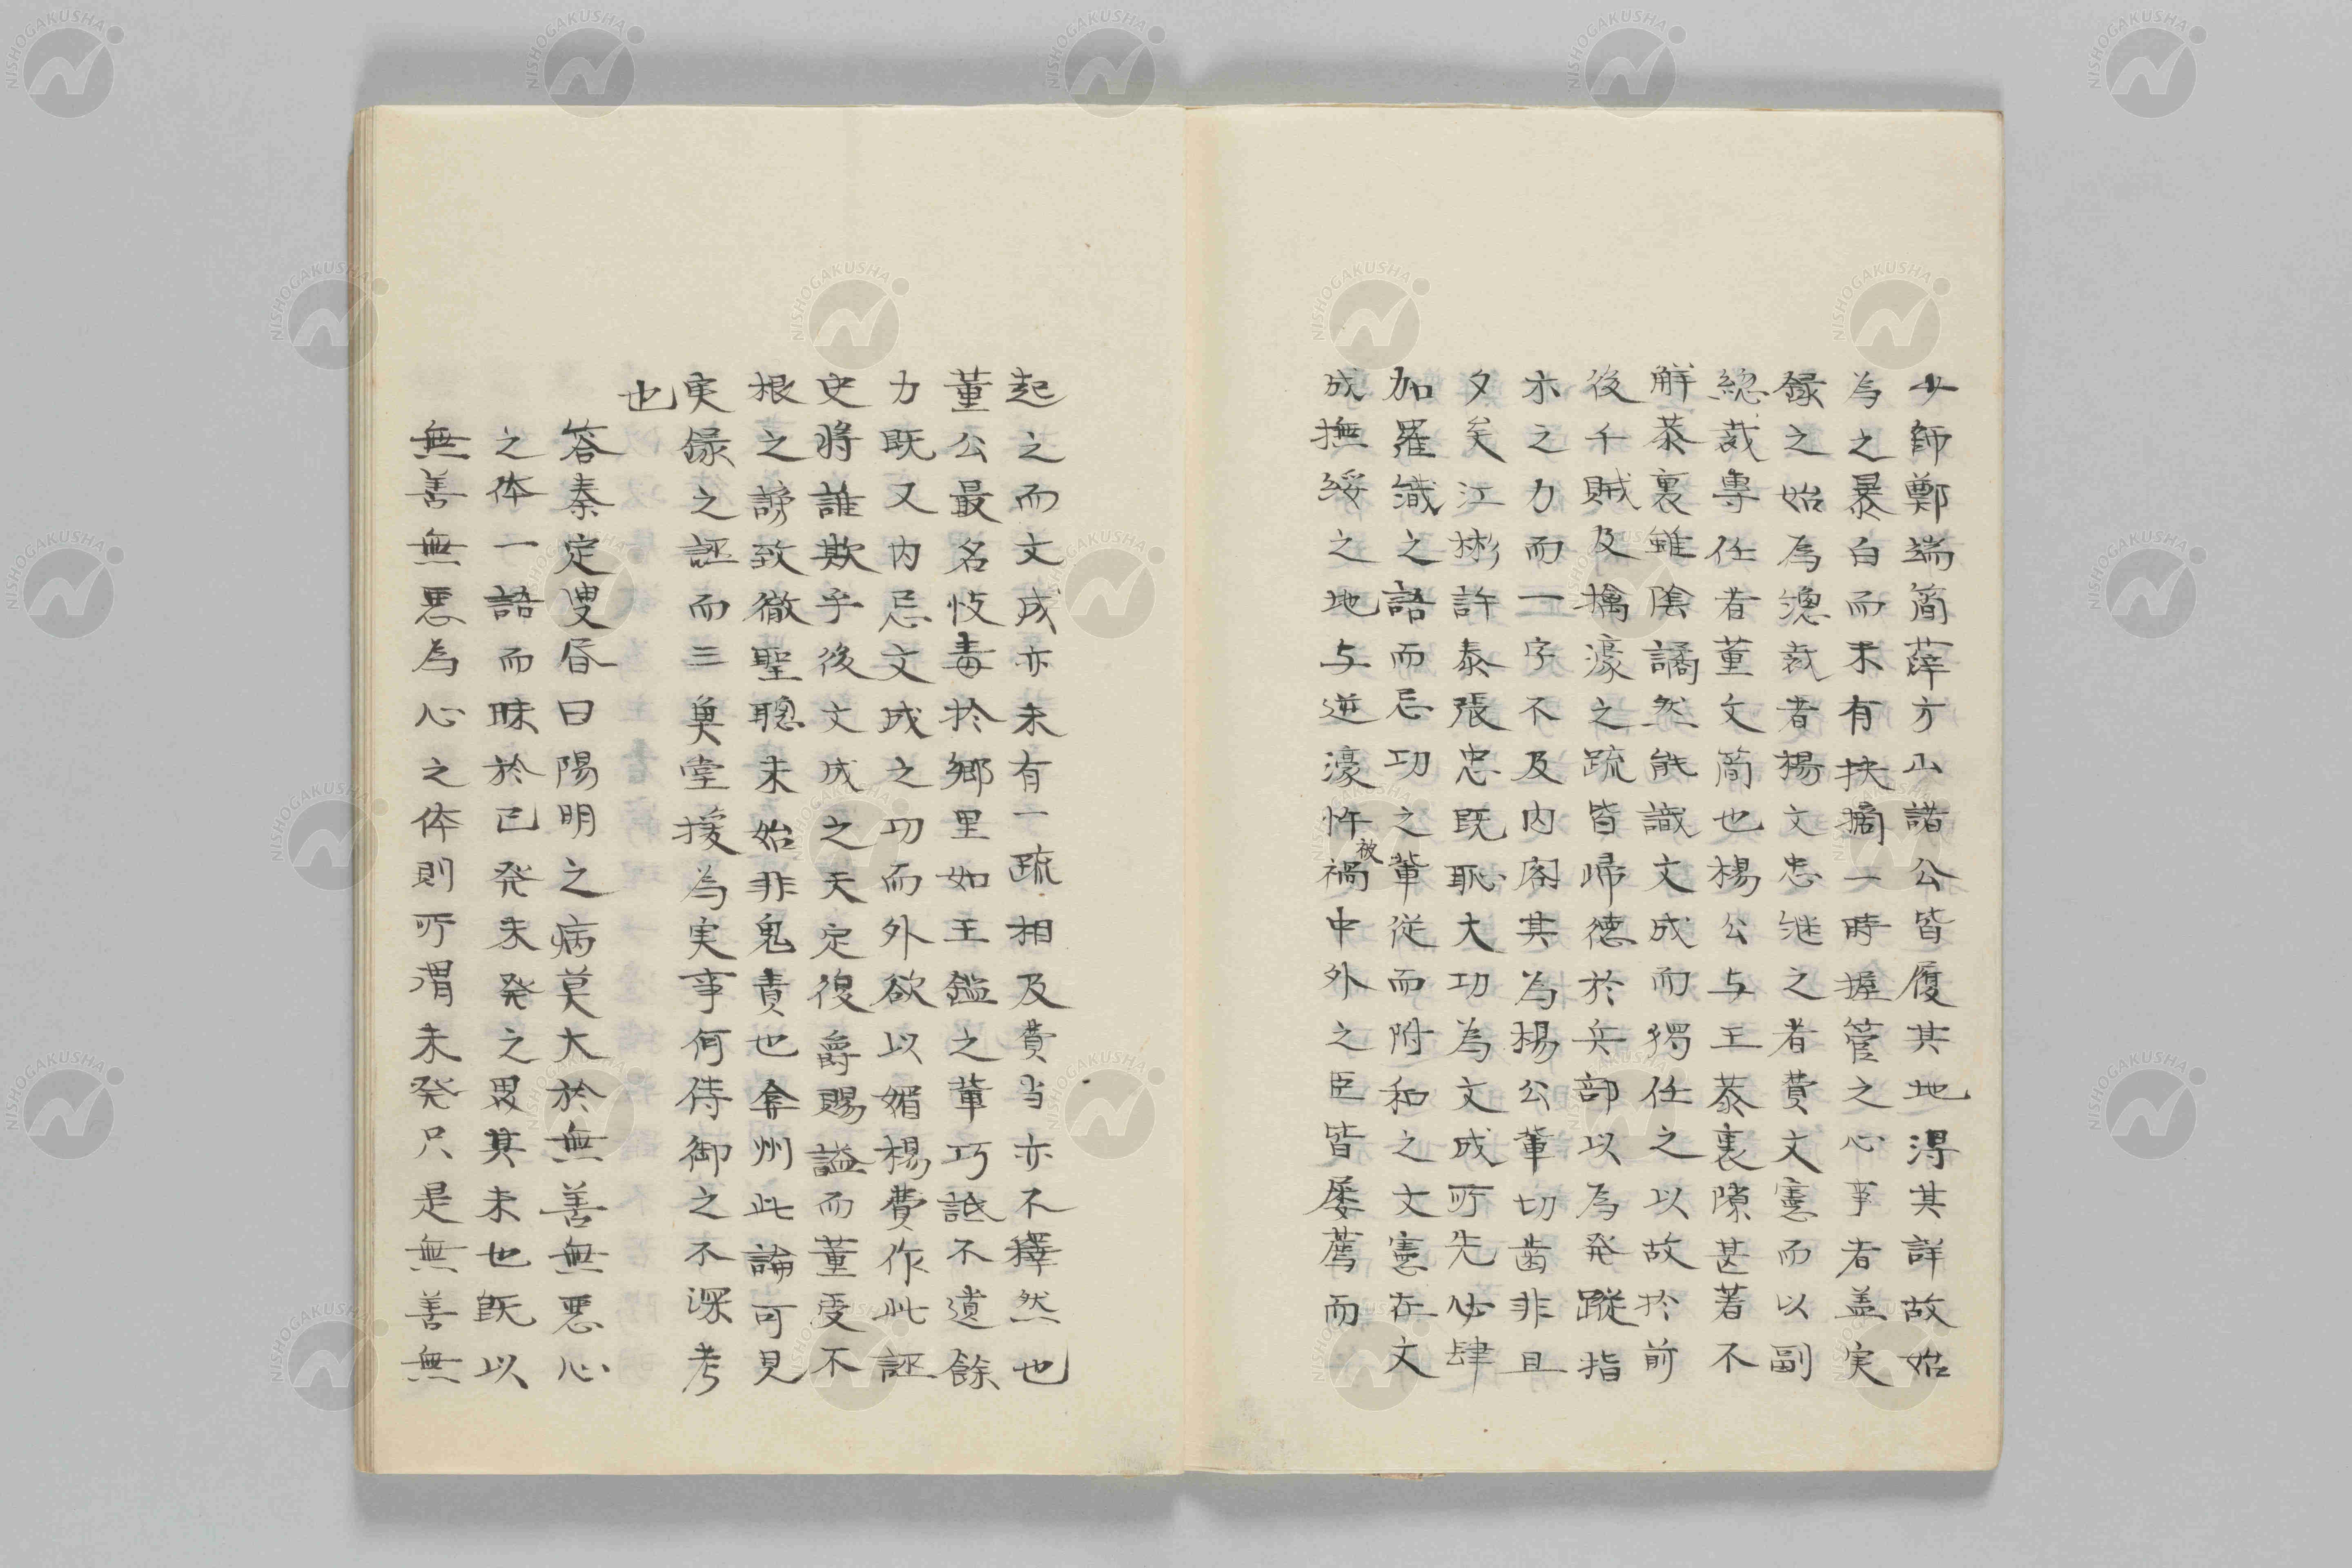 少師鄭端簡薛方山諸公皆履其地得其詳故始
為之暴白而未有抉擿一時握管之心事者盖実
録之始為總裁者楊文忠継之者費文憲而以副
総裁専任者董文簡也楊公与王恭襄隙甚著不
解恭襄雖陰譎然能識文成而独任之以故於前
後千賊及擒濠之疏皆帰徳於兵部以為発蹤指
示之力而一字不及内閣其為楊公軰切歯非且
夕矣江彬許泰張忠既恥大功為文成所先必肆
加羅織之語而忌功之軰従而附和之文憲在文
成撫綏之地与逆濠忤被禍中外之臣皆屡薦而
起之而文成亦未有一疏相及費当亦不釋然也
董公最名忮毒於郷里如王鑑之軰巧詆不遺餘
力既又内忌文成之功而外欲以媚楊費作此誣
史将誰欺乎後文成之天定復爵賜謚而董受不
根之謗致徹聖聡未始非鬼責也弇州此論可見
実録之誣而三奠堂援為実事何待御之不深考
也
答秦定叟昏曰陽明之病莫大於無善無悪心
之体一語而昧於已発未発之界其未也既以
無善無悪為心之体則所謂未発只是無善無
NISHOGAKUSHA